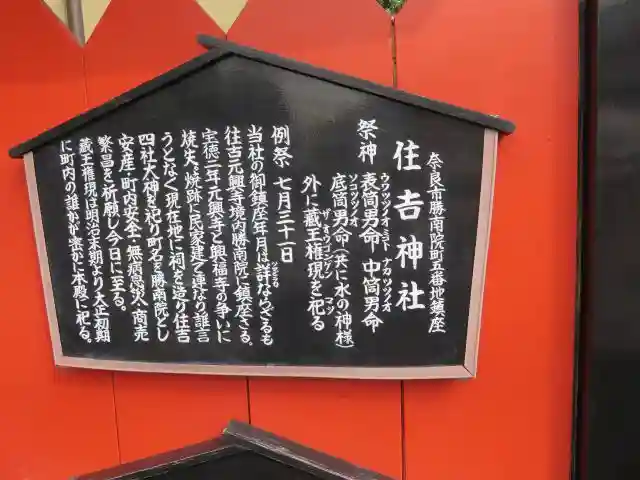 奈良市勝南院町五番地鎮座
住吉神社
ウワツツノオミコト ナカツツノオ
祭神 表筒男命 中筒男命
ソコツツノオ
底筒男命(共に水の神様)
ザオウゴンゲン マツ
外に蔵王権現を祀る
例祭 七月三十一日
当社の御鎮座年月は詳ならざるも
往古元興寺境内勝南院に鎮座さる。
宝徳三年元興寺と興福寺の争いに
焼失、焼跡に民家建て連なり誰言
うとなく現在地に祠を造り住吉
四社大神を祀り町名を勝南院とし
安産・町内安全・無病息災、商売
繁昌を祈願し今日に至る。
蔵王権現は明治末期より大正初期
に町内の誰かが密かに本殿に祀る。